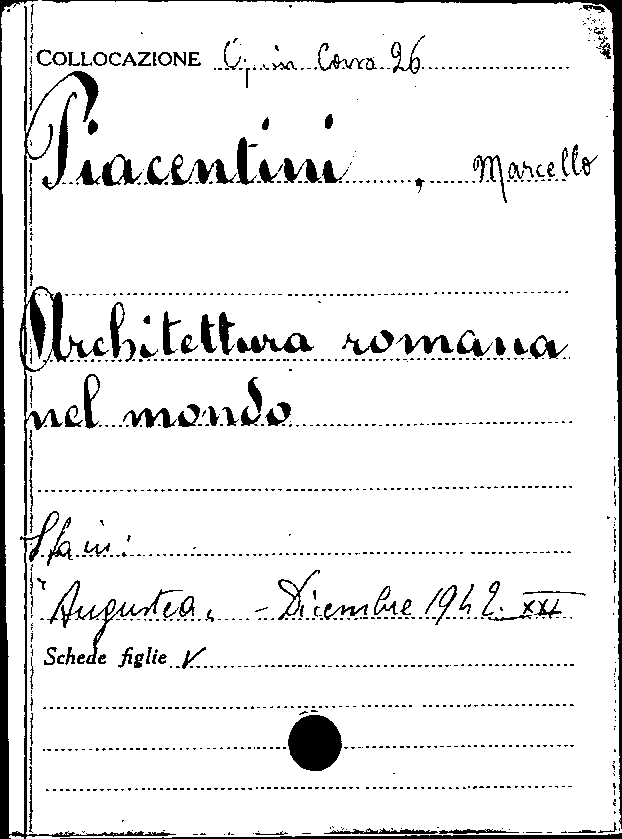 COLLOCAZIONE Op. in Corso 26
Piacentini, Marcello
Architettura romana
nel mondo
Sta in:
"Augustea" - Dicembre 1942. XXI
Schede figlie V